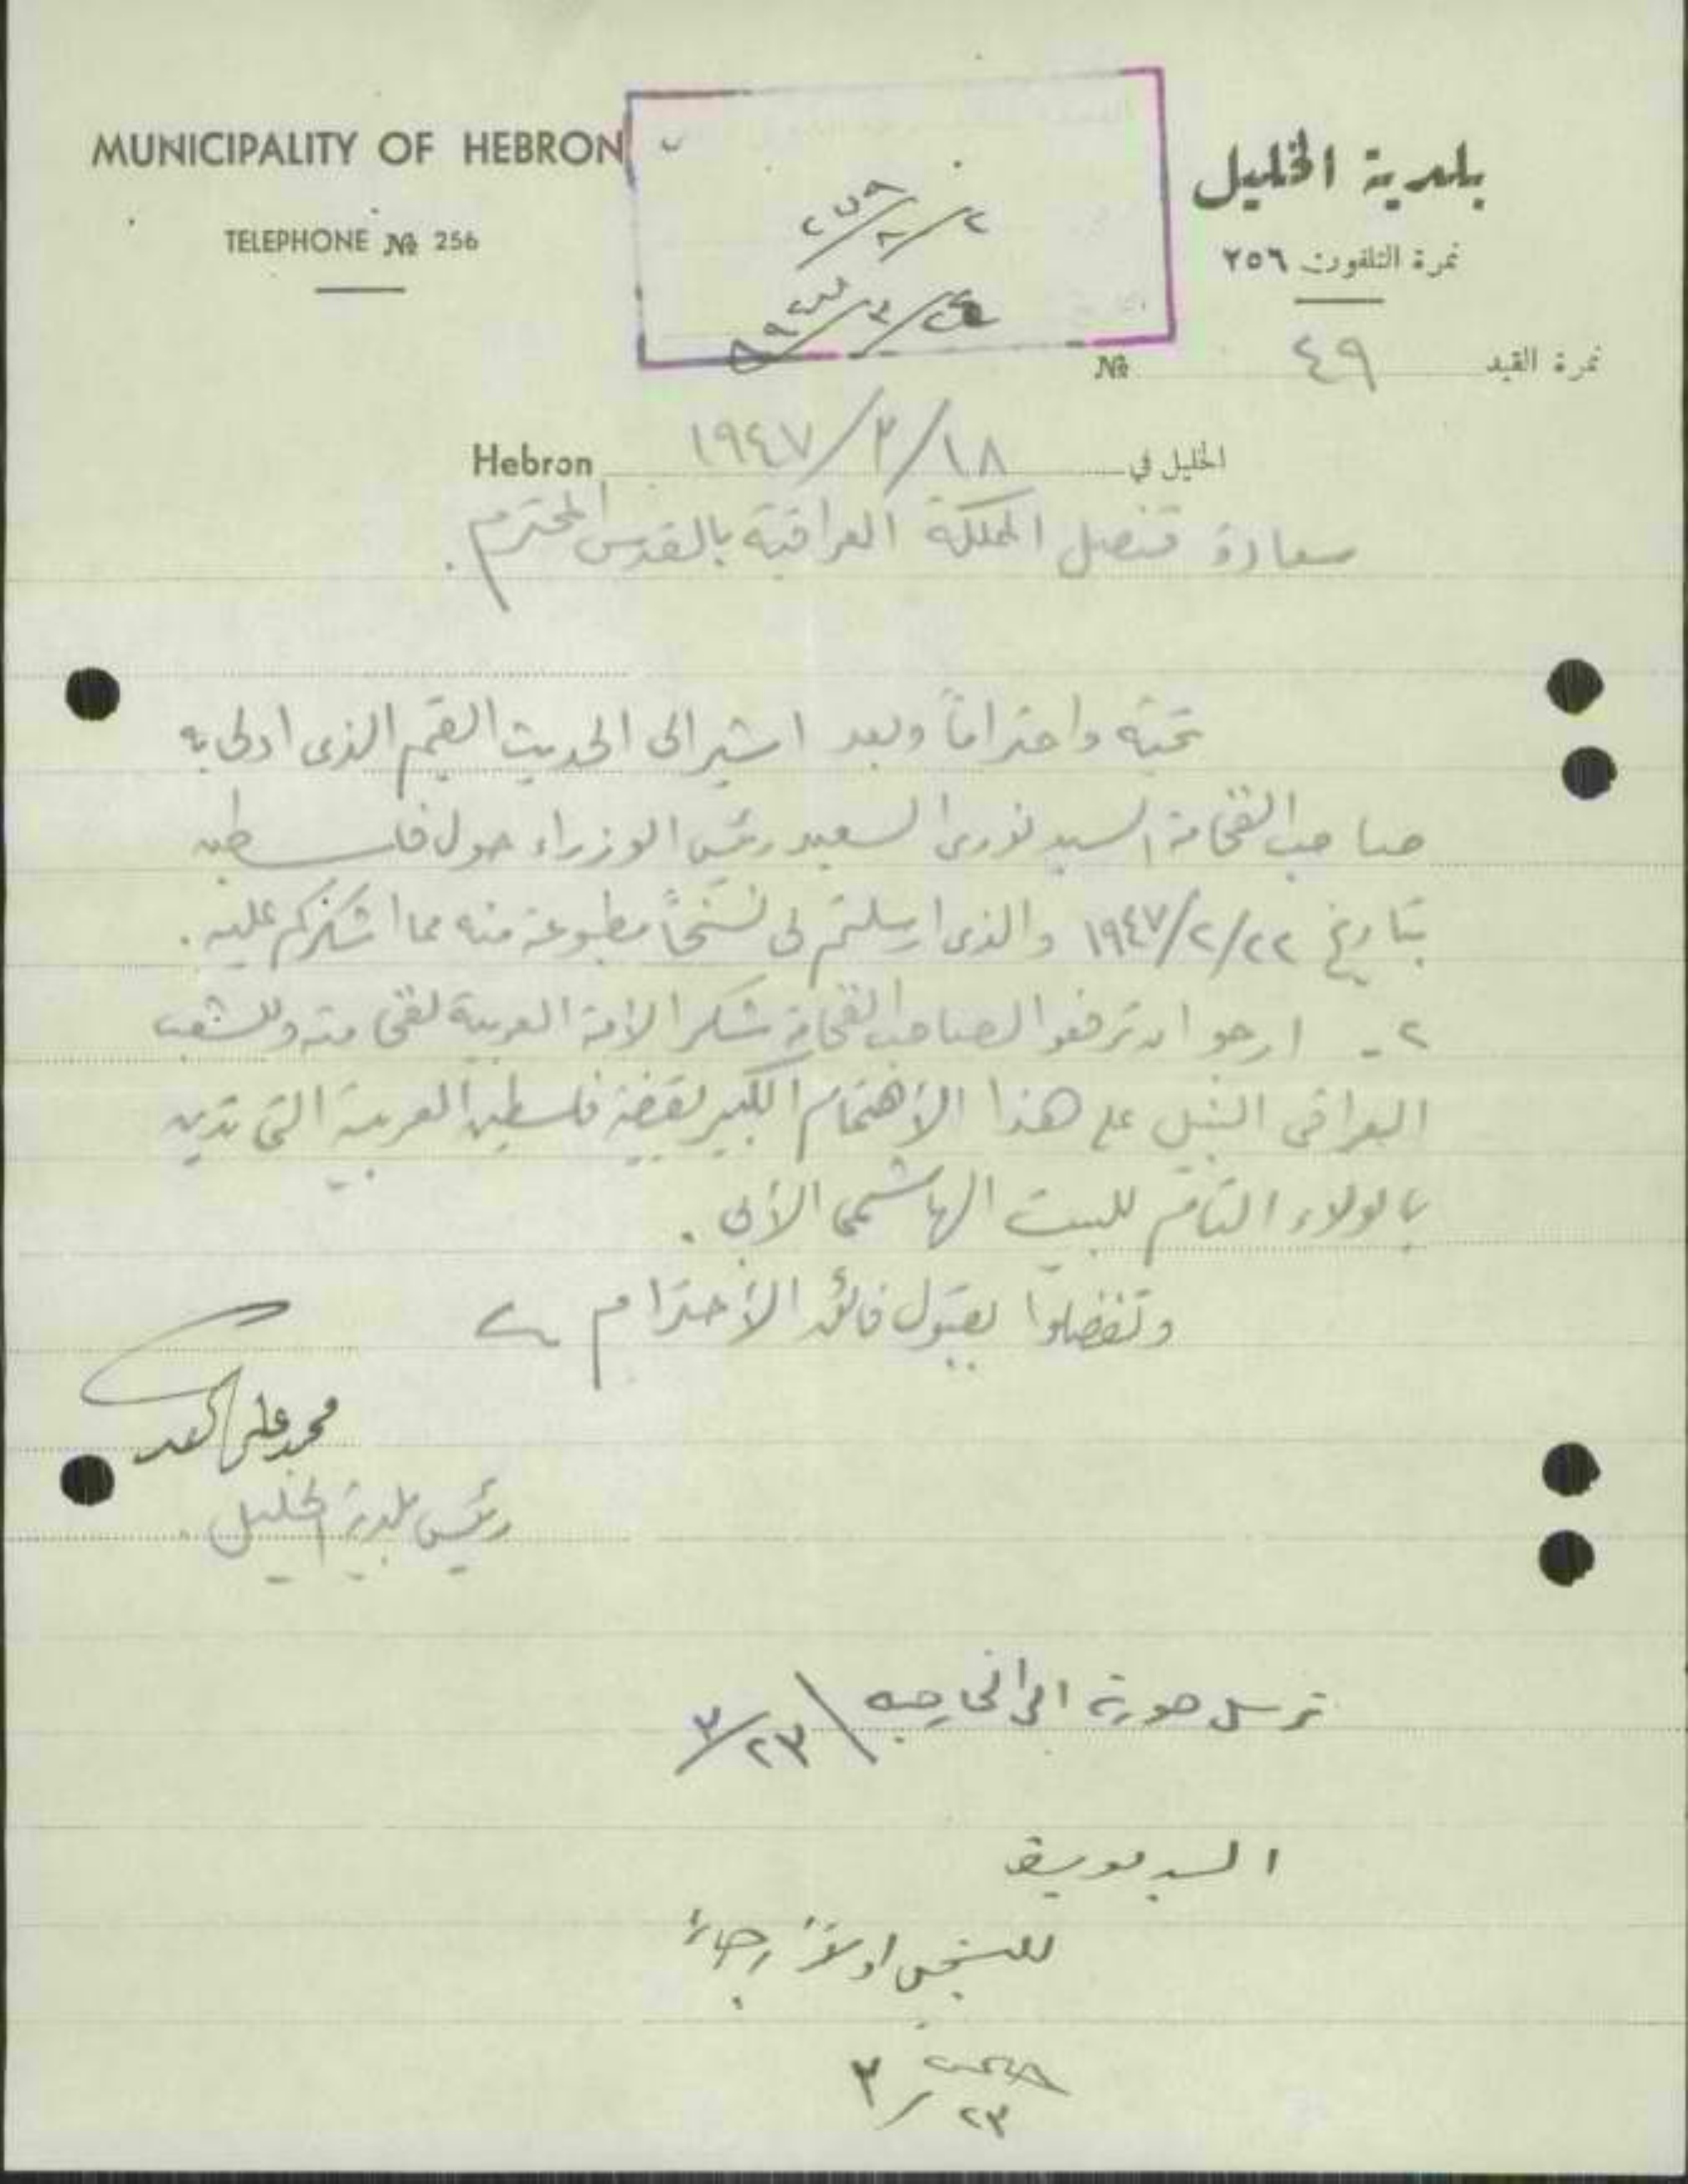 MUNICIPALITY OF HEBRON
TELEPHONE № 256
بلدية الخليل
نمرة التلفون ٢٥٦
نمرة القيد ٤٩ №
الخليل في ١٨/٣/١٩٤٧ Hebron
سعادة قنصل المملكة العراقية بالقدس المحترم .
تحية واحتراماً وبعد اشير الى الحديث القيم الذى ادلى به
صاحب الفخامة السيد نورى السعيد رئيس الوزراء حول فلسطين
بتاريخ ٢٢/٢/١٩٤٧ والذى ارسلتم لى نسخاً مطبوعة منه مما اشكركم عليه .
٢ - ارجو ان ترفعوا لصاحب الفخامة شكر الامة العربية لفخامته وللشعب
العراقى النبيل على هذا الأهتمام الكبير بقضية فلسطين العربية التى تدين
بالولاء التام للبيت الهاشمى الأبى .
وتفضلوا بقبول فائق الأحترام
محمد على الجعبرى
رئيس بلدية الخليل .
ترسل صورته الى الخارجية ٢٣/٣
السيد يوسف
للتسجيل اولاً رجاءً
٢٣/٣